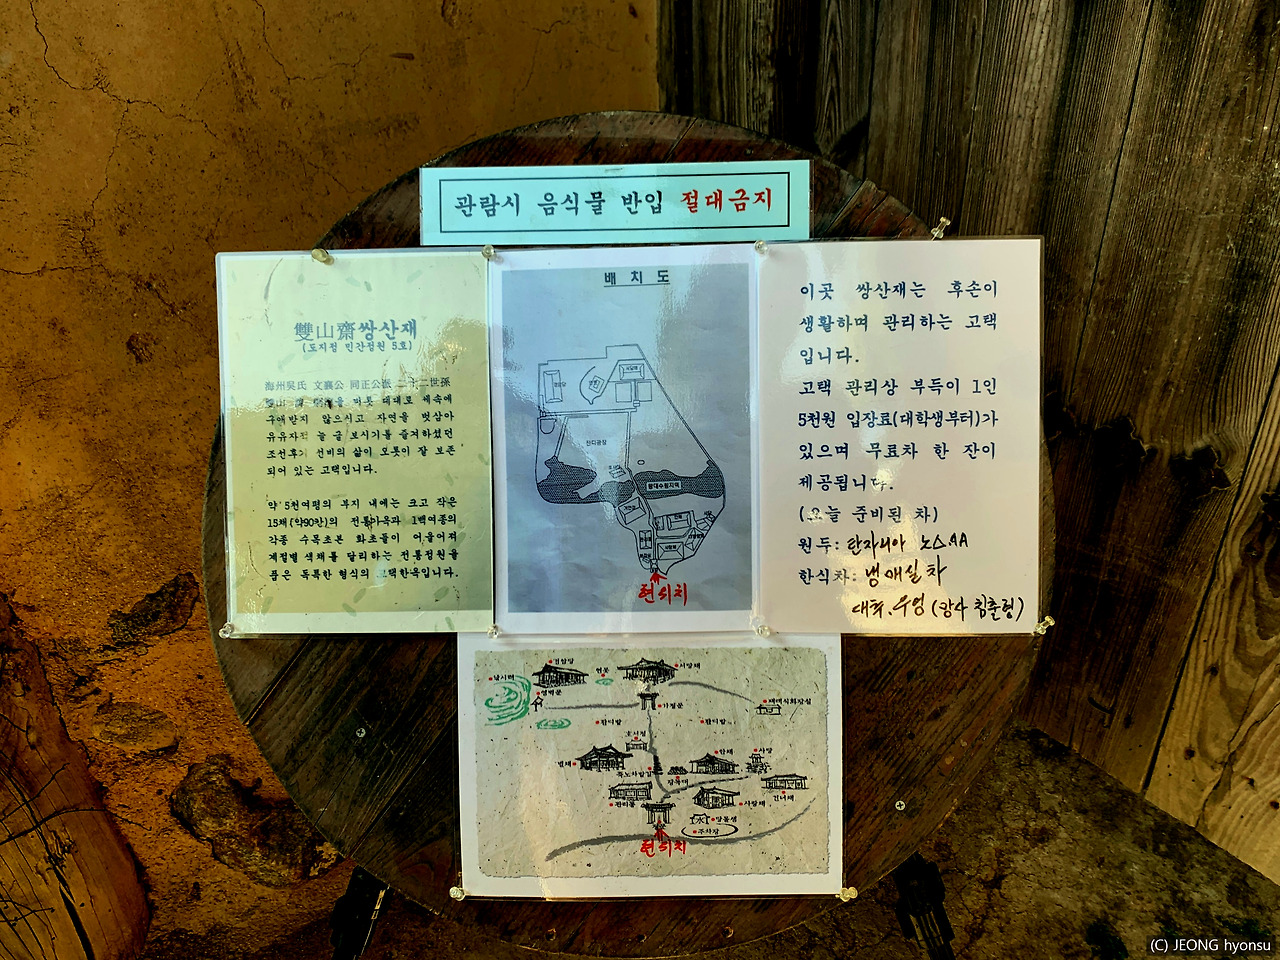 관람시 음식물 반입 절대금지
雙山齋쌍산재
(도지정 민간정원 5호)
海州吳氏 文襄公 同正公派 二十二世孫
雙山
대대로 세속에
구애받지 않으시고 자연을 벗삼아
유유자적 늘 글 보시기를 즐겨하셨던
조선후기 선비의 삶이 오롯이 잘 보존
되어 있는 고택입니다.
약 5천여평의 부지 내에는 크고 작은
15채(약90칸)의 전통가옥과 1백여종의
각종 수목초본 화초들이 어울어져
계절별 색채를 달리하는 전통정원을
품은 독특한 형식의 고택한옥입니다.
배 치 도
잔디광장
현위치
이곳 쌍산재는 후손이
생활하며 관리하는 고택
입니다.
고택 관리상 부득이 1인
5천원 입장료(대학생부터)가
있으며 무료차 한 잔이
제공됩니다.
(오늘 준비된 차)
원두: 탄자니아 노스AA
한식차: 냉매실차
경암당
연못
서당채
영벽문
가정문
잔디밭
잔디밭
호서정
안채
사당
별채
관리동
사랑채
건너채
당몰샘
주차장
현위치
(C) JEONG hyonsu